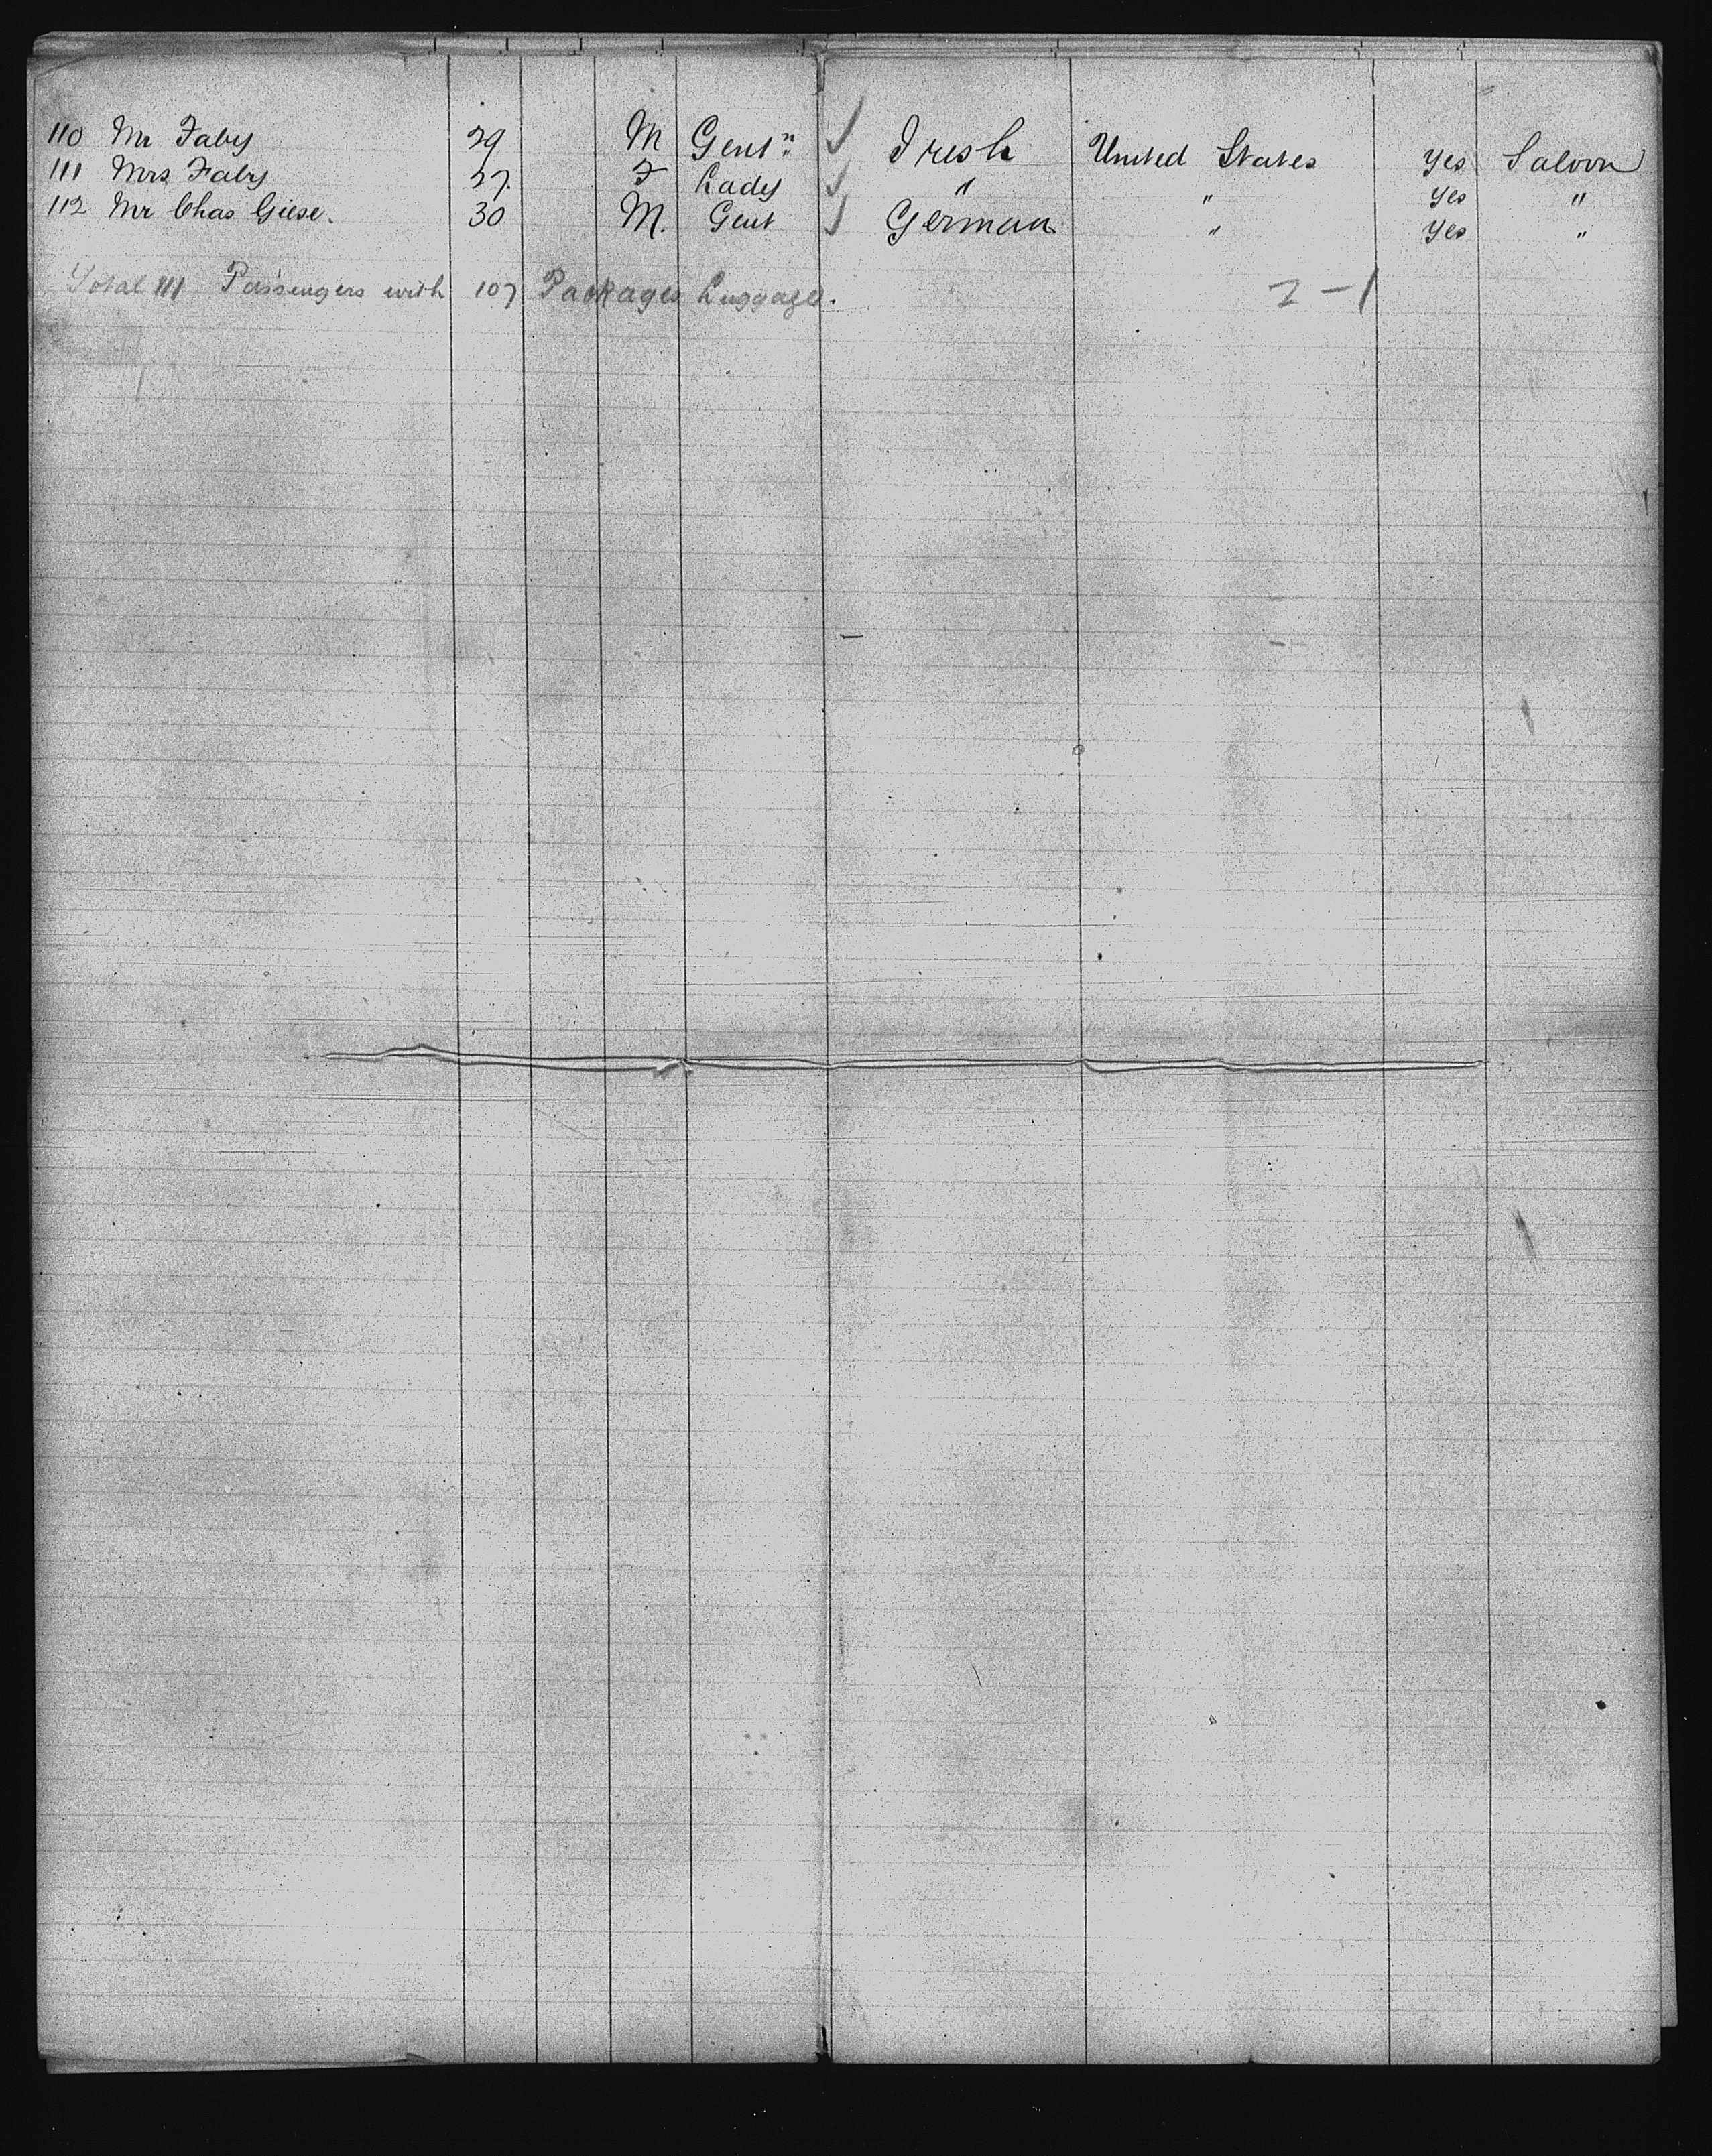 110 Mr Faby 29 M Gentn ✓ Iresh United States Yes Saloon
111 Mrs Faby 27. F Lady ✓ " " Yes "
112 Mr Chas Giese. 30 M. Gent ✓ German " Yes "
Total 111 Passengers with 107 Packages Luggage. 2-1